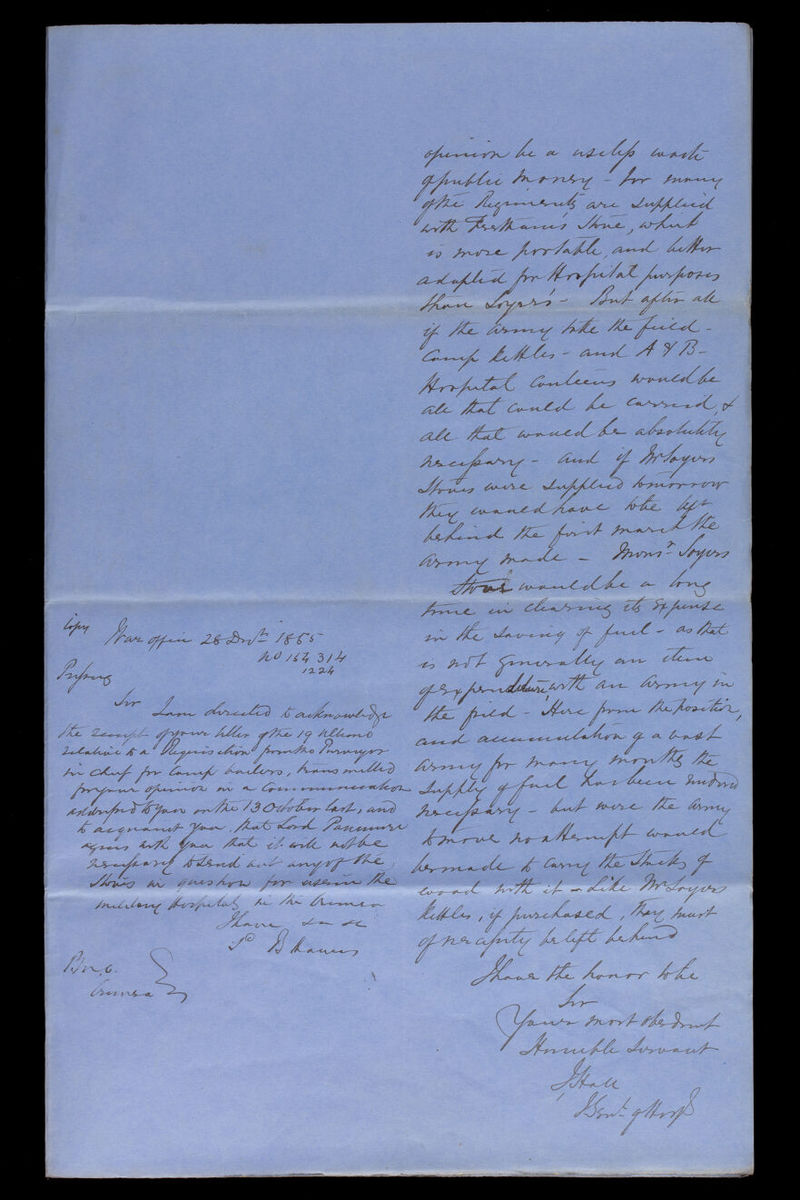 opinion be a useless waste
of public money - for many
of the Regiments are supplied
with Fretham's Stove, which
is more portable, and better
adapted for Hospital purposes
than Soyer's - But after all
if the army take the field -
Camp kettles - and A & B -
Hospital Canteens would be
all that could be carried, &
all that would be absolutely
necessary - and if Mr Soyers
Stoves were supplied tomorrow
they would have to be left
behind the first march the
army made - Monsr. Soyers
Stove would be a long
time in clearing its expense
in the saving of fuel - as that
is not generally an item
of expenditure with an army in
the field - Here from the position,
and accumulation of a vast
army for many months the
supply of fuel has been rendered
necessary - but were the army
to move no attempt would
be made to carry the stacks of
wood with it & like Mr Soyers
kettles, if purchased, they must
of necessity be left behind
I have the honor to be
Sir
Your most obedient
Humble Servant
J Hall
I Genl. of Hosp
Copy
War office 28 1855
No 154 314
1224
Sir
I am directed to acknowledge
the receipt of your letter of the 19 Ultimo
relative to a Requisition from the Purveyor
in Chief for Camp boilers, transmitted
for your opinion in a Communication
addressed to you on the 13 October last, and
to acquaint you, that Lord Panmure
agrees with you that it will not be
necessary to send out any of the
Stoves in question for use in the
military Hospitals in the Crimea
I have &c &c
Sd B Hawes
Crimea